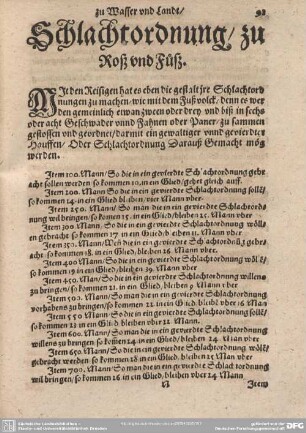 zu Wasser vnd Landt/
Schlachtordnung/ zu
Roß vnd Füß.
MIt den Reisigen hat es eben die gestalt jre Schlachtord
nungen zu machen/ wie mit dem Fußvolck/ denn es wer
den gemeinlich etwan zween oder drey vnd biß in sechs
oder acht Geschwader vnnd Fahnen oder Paner/ zu sammen
gestossen vnd geordnet/ darmit ein gewaltiger vnnd gevierdter
Houffen/ Oder Schlachtordnung Darauß Gemacht mög
werden.
Item 100. Mann/ So die in ein gevierdte Schlachtordnung gebr
acht sollen werden/ so kommen 10. in ein Glied/ gehet gleich auff.
Item 200. Mann/ So die in ein gevierdte Schlachtordnung söllē/
so kommen 14. in ein Glied bleiben. vier Mann vber.
Item 250. Mann/ So man die in ein gevierdte Schlachtordnung
wil bringen/ so kommen 15. in ein Glied/ bleiben 25. Mann vber
Item 300. Mann/ So die in ein gevierdte Schlachtordnung wöllē
ein gebracht so kommen 17 in ein Glied
Item 350. Mann/
acht/ so kommen 18. in ein Glied/ bleiben 26. Man vber.
Item 400 Mann/ So die in ein gevierdte Schlachtordnung wöllē/
so kommen
Item 450 Mann/ So die in ein gevierdte Schlachtordnung wöllens
zu bringen/ so kommen 21. in ein Glied/ bleiben 9 Mann vber
Item 500. Mann/ So man die in ein gevierdte Schlachtordnung
vorhabens zu bringen/ so kommen 22. in ein Glied bleibt vber 16 Man
Item 550 Mann/ So die in ein gevierdte Schlachtordnung söllē/
so kommen 23 in ein Glied bleiben vber 21 Mann.
Item 600 Mann/ So man die in ein gevierdte Schlachtordnung
willens zu bringen/ so komen 24. in ein Glied/ bleiben 24. Mann vber
Item 650 Mann/ So die in ein gevierdte Schlachtordnung wöllē/
gebracht werden/ so kommen 25 in ein Glied/ bleiben 25 Man vber
Item 700. Mann/ So man die in ein gevierdte Schlachtordnung
wil bringen/ so kommen 26 in ein Glied/ bleiben vber 24 Mann
Item